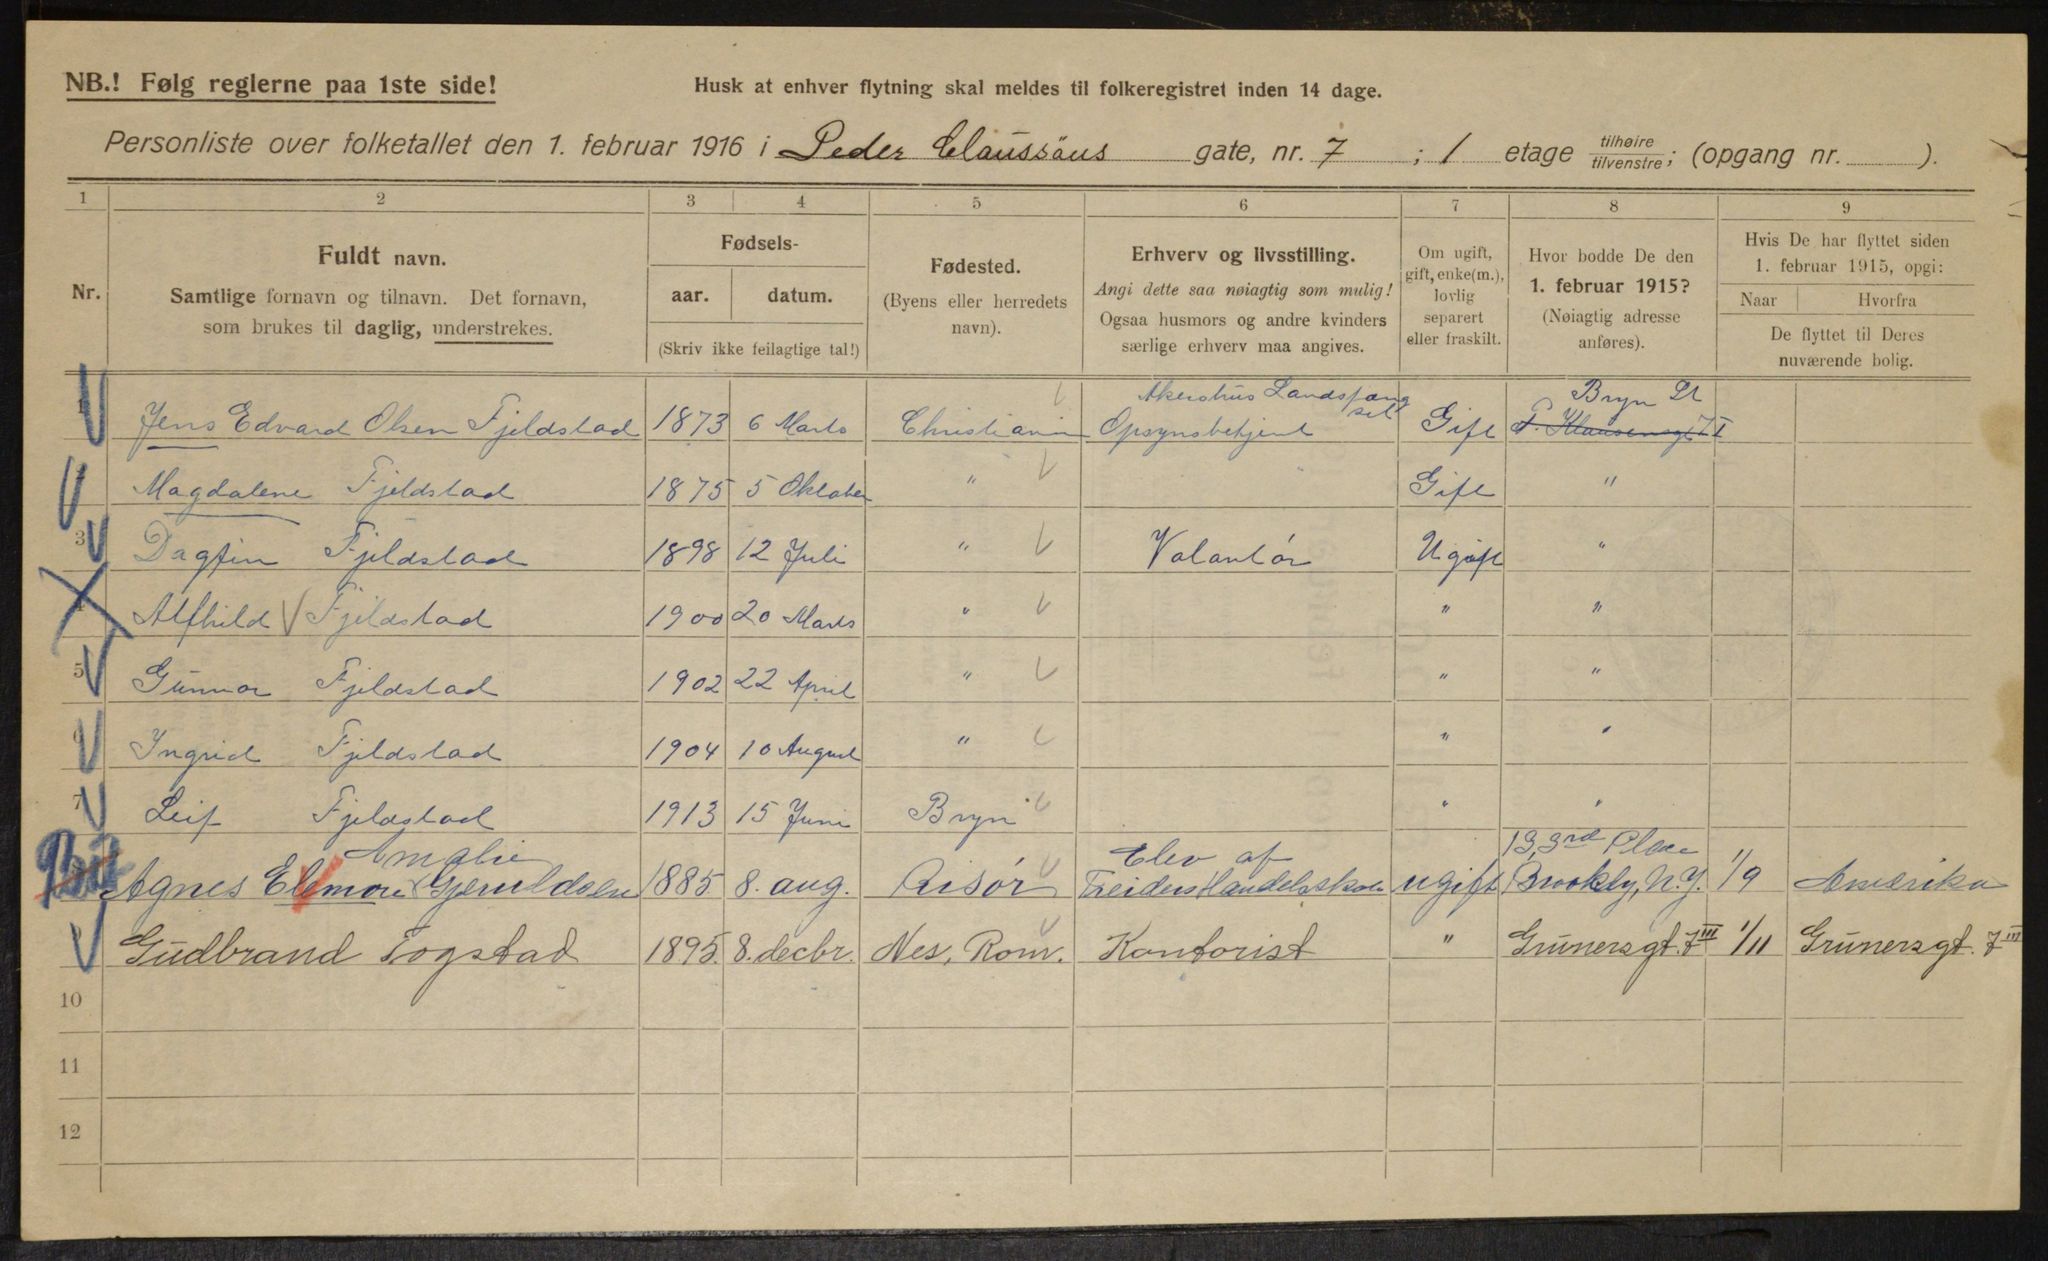 NB.! Følg reglerne paa 1ste side!
Husk at enhver flytning skal meldes til folkeregistret inden 14 dage.
Personliste over folketallet den 1. februar 1916 i Peder Claussøns gate, nr. 7 ; 1 etage tilhøire tilvenstre; (opgang nr. ).
1 2 3 4 5 6 7 8 9
Nr.
Fuldt navn.
Samtlige fornavn og tilnavn. Det fornavn,
som brukes til daglig, understrekes.
Fødsels-
aar. datum.
(Skriv ikke feilagtige tal!)
Fødested.
(Byens eller herredets
navn).
Erhverv og livsstilling.
Angi dette saa nøiagtig som mulig!
Ogsaa husmors og andre kvinders
særlige erhverv maa angives.
Om ugift,
gift, enke(m.),
lovlig
separert
eller fraskilt.
Hvor bodde De den
1. februar 1915?
(Nøiagtig adresse
anføres).
Hvis De har flyttet siden
1. februar 1915, opgi:
Naar Hvorfra
De flyttet til Deres
nuværende bolig.
Akershus Landsfang Bryn St
Jens Edvard Olsen Fjeldstad 1873 6 Marts Christiania Opsynsbetjent Gift P. Klausensgt 7 I
Magdalene Fjeldstad 1875 5 Oktober " Gift "
3 Dagfin Fjeldstad 1898 12 Juli " Volantør Ugift "
4 Alfhild Fjeldstad 1900 20 Marts " " "
5 Gunnar Fjeldstad 1902 22 April " " "
6 Ingrid Fjeldstad 1904 10 August " " "
7 Leif Fjeldstad 1913 15 Juni Bryn " "
Amalie Elev af 13, 3rd Place
Agnes Elemore Gjeruldsen 1885 8. aug. Risør Treiders Handelsskole ugift Brookly, N.Y. 1/9 Amerika
Gudbrand Togstad 1895. 8. decbr. Nes, Rom. Kontorist " Grünersgt. 7 III 1/11 Grünersgt. 7 III
10
11
12